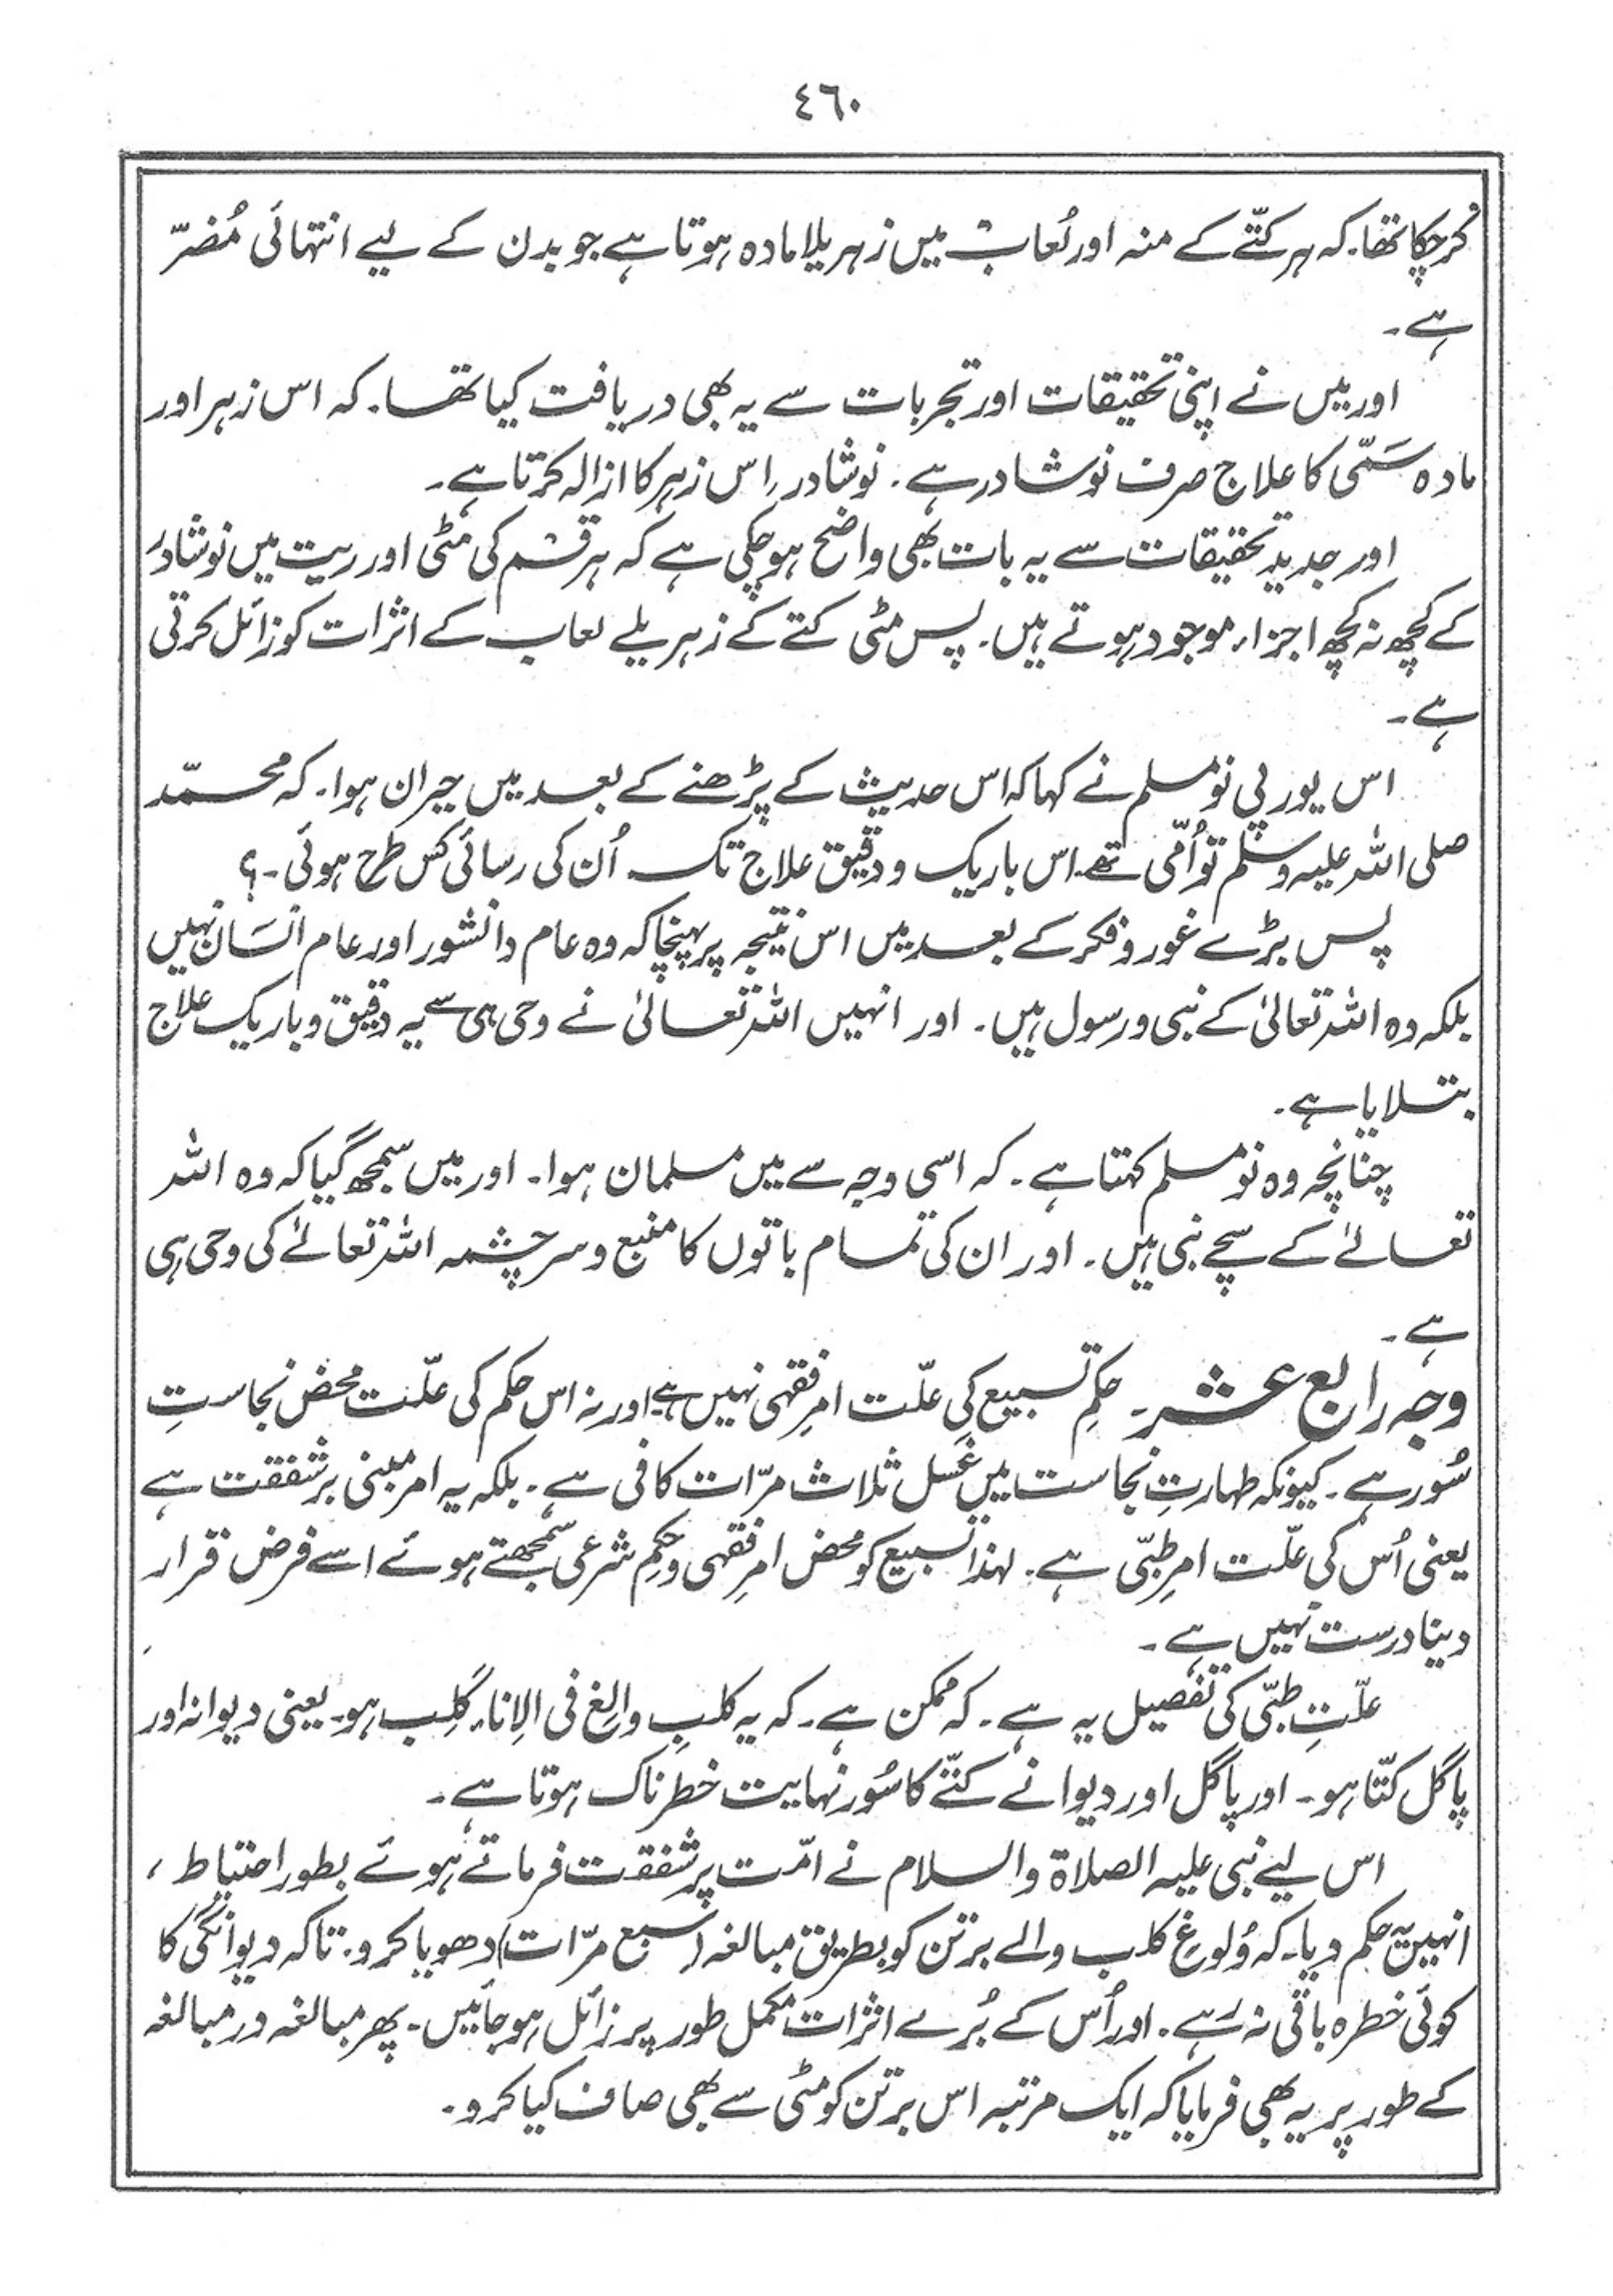 ٤٦٠
کرچکا تھا۔ کہ ہر کتّے کے منہ اور لُعاب میں زہریلا مادہ ہوتا ہے جو بدن کے لیے انتہائی مُضرّ
ہے۔
اور میں نے اپنی تحقیقات اور تجربات سے یہ بھی دریافت کیا تھا۔ کہ اس زہر اور
مادہ سَمّی کا علاج صرف نوشادر ہے۔ نوشادر اِس زہر کا ازالہ کرتا ہے۔
اور جدید تحقیقات سے یہ بات بھی واضح ہوچکی ہے کہ ہر قسم کی مٹی اور ریت میں نوشادر
کے کچھ نہ کچھ اجزاء موجود ہوتے ہیں۔ پس مٹی کتے کے زہریلے لعاب کے اثرات کو زائل کرتی
ہے۔
اس یورپی نومسلم نے کہا کہ اس حدیث کے پڑھنے کے بعد میں حیران ہوا۔ کہ محمّد
صلی اللہ علیہ وسلم تو اُمّی تھے۔ اس باریک و دقیق علاج تک اُن کی رسائی کس طرح ہوئی۔؟
پس بڑے غور و فکر کے بعد میں اس نتیجہ پر پہنچا کہ وہ عام دانشور اور عام انسان نہیں
بلکہ وہ اللہ تعالیٰ کے نبی و رسول ہیں۔ اور انہیں اللہ تعالیٰ نے وحی ہی سے یہ دقیق و باریک علاج
بتلایا ہے۔
چنانچہ وہ نومسلم کہتا ہے۔ کہ اسی وجہ سے میں مسلمان ہوا۔ اور میں سمجھ گیا کہ وہ اللہ
تعالےٰ کے سچے نبی ہیں۔ اور ان کی تمام باتوں کا منبع و سرچشمہ اللہ تعالےٰ کی وحی ہی
ہے۔
وجہ رابع عشر۔ حکمِ تسبیع کی علّت امرِ فقہی نہیں ہے اور نہ اس حکم کی علّت محض نجاستِ
سُور ہے۔ کیونکہ طہارتِ نجاست میں غَسل ثلاث مرّات کافی ہے۔ بلکہ یہ امر مبنی بر شفقت ہے
یعنی اُس کی علّت امرِ طبّی ہے۔ لہٰذا تسبیع کو محض امرِ فقہی و حکمِ شرعی سمجھتے ہوئے اسے فرض قرار
دینا درست نہیں ہے۔
علّتِ طبّی کی تفصیل یہ ہے۔ کہ ممکن ہے۔ کہ یہ کلبِ والِغ فی الاِناء کَلِب ہو۔ یعنی دیوانہ اور
پاگل کتّا ہو۔ اور پاگل اور دیوانے کتّے کا سُور نہایت خطرناک ہوتا ہے۔
اس لیے نبی علیہ الصلاۃ والسلام نے امّت پر شفقت فرماتے ہوئے بطور احتیاط،
انہیں یہ حکم دیا۔ کہ وُلوغِ کلب والے برتن کو بطریق مبالغہ (سبع مرّات) دھویا کرو۔ تاکہ دیوانگی کا
کوئی خطرہ باقی نہ رہے۔ اور اُس کے بُرے اثرات مکمل طور پر زائل ہوجائیں۔ پھر مبالغہ در مبالغہ
کے طور پر یہ بھی فرمایا کہ ایک مرتبہ اس برتن کو مٹی سے بھی صاف کیا کرو۔